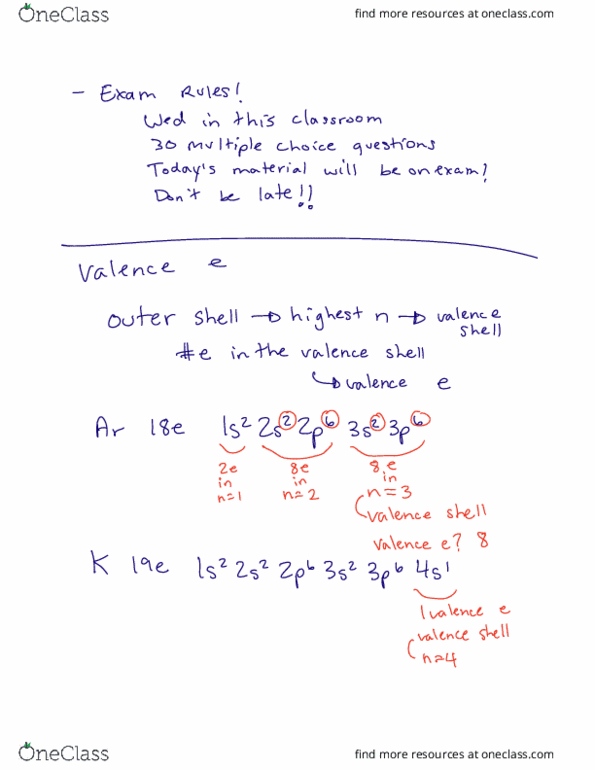 OneClass
find more resources at oneclass.com
- Exam Rules!
Wed in this classroom
30 multiple choice questions
Today's material will be on exam!
Don't be late!!
Valence e
outer shell → highest n → valence shell
#e in the valence shell
↳ valence e
Ar 18e 1s² 2s² 2p⁶ 3s² 3p⁶
2e in n=1
8e in n=2
8 e in n=3
valence shell
valence e? 8
K 19e 1s² 2s² 2p⁶ 3s² 3p⁶ 4s¹
1 valence e
valence shell
n=4
OneClass
find more resources at oneclass.com